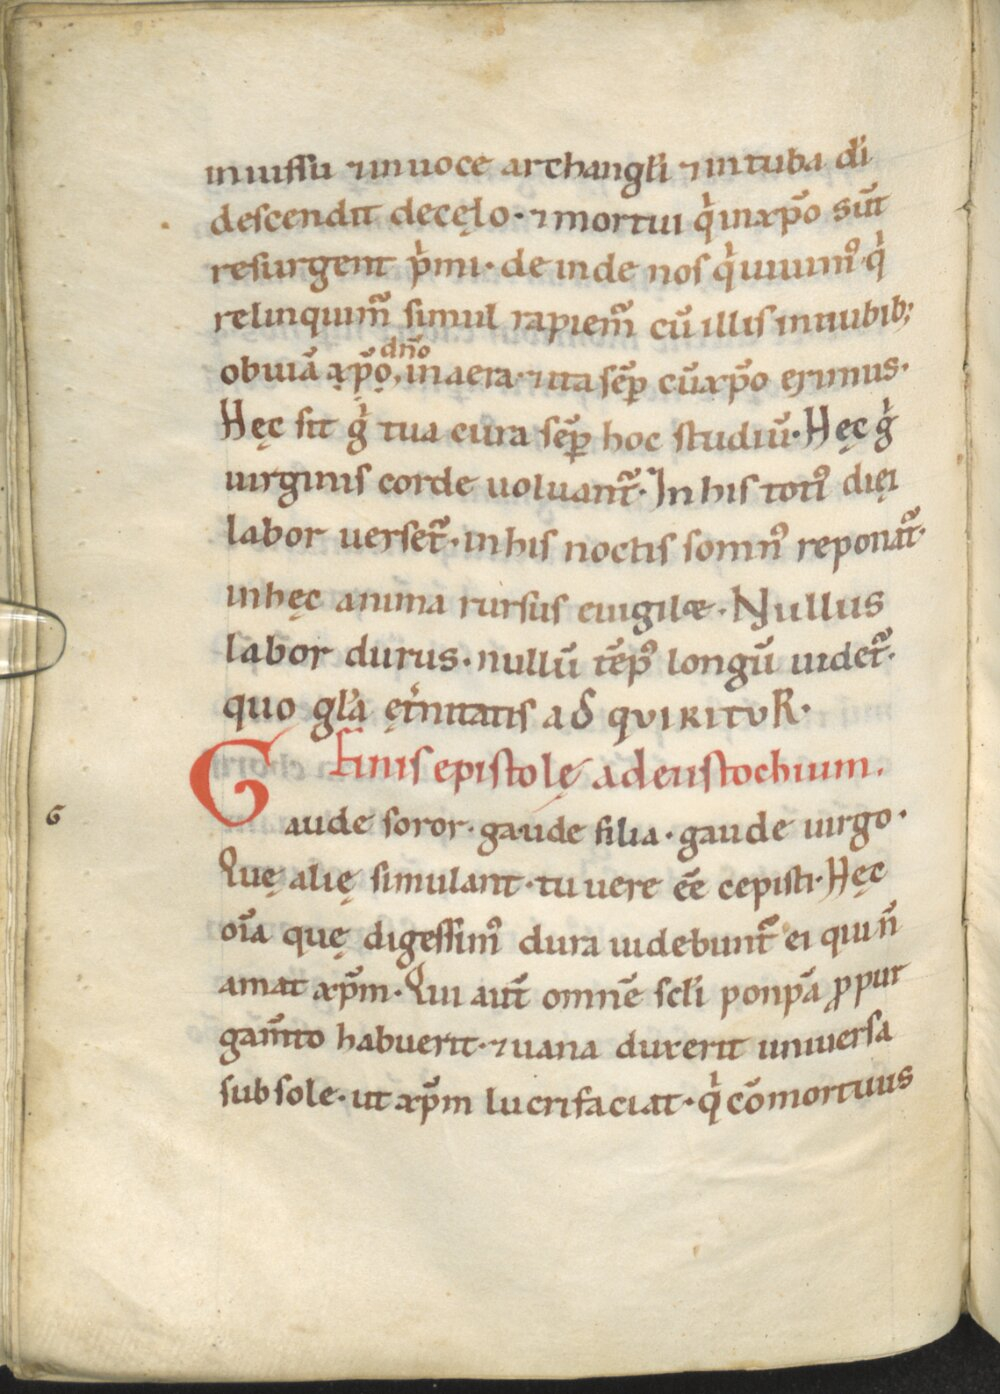 iniussu ⁊ inuoce archangl̓i ⁊ intuba dı̄
descendit decęlo· ⁊ mortui qͥ inxp̄o sūt
resurgent pͥmi· de inde nos qͥ uiuimꝰ qͥ
relinquim̃ simul rapiem̃ cū illis innubib;
obuiā x̣p̣̄ọ, dn̄o inaera· ⁊ ita sēp cūxp̄o erimus·
Hęc sit gͥ tua cura sēp hoc studiū· Hęc gͥ
uirginis corde uoluant̃· In his totꝰ dięi
labor uerset̃· inhis noctis somnꝰ reponat̃·
inhęc anima rursus euigilæ· Nullus
labor durus· nullū tēpꝰ longū uidet̃·
quo gl̓a ęt̓nitatis ad QVIRITVR·
Finis epistolę adeustochium.
G
G aude soror· gaude filia· gaude uirgo·
Quę alię simulant· tu uere ēe cepisti· Hęc
oı̄a quę digessimꝰ dura uidebunt̃ ei qui n̄
amat xp̄m· Qui aūt omnē scl̓i ponpā ꝓ pur
gam̄to habuerit· ⁊ uana duxerit uniuersa
subsole· ut xp̄m lucrifaciat· qͥ cōmortuus